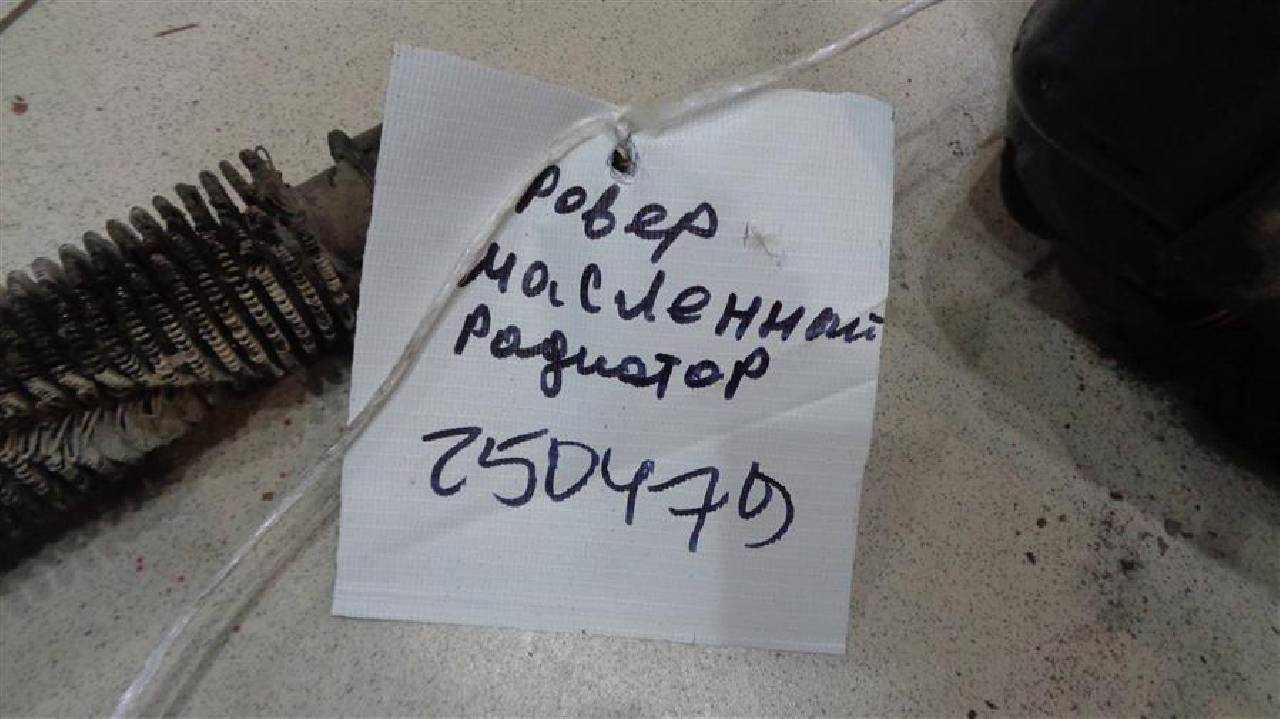 Ровер
масленный
радиатор
250479